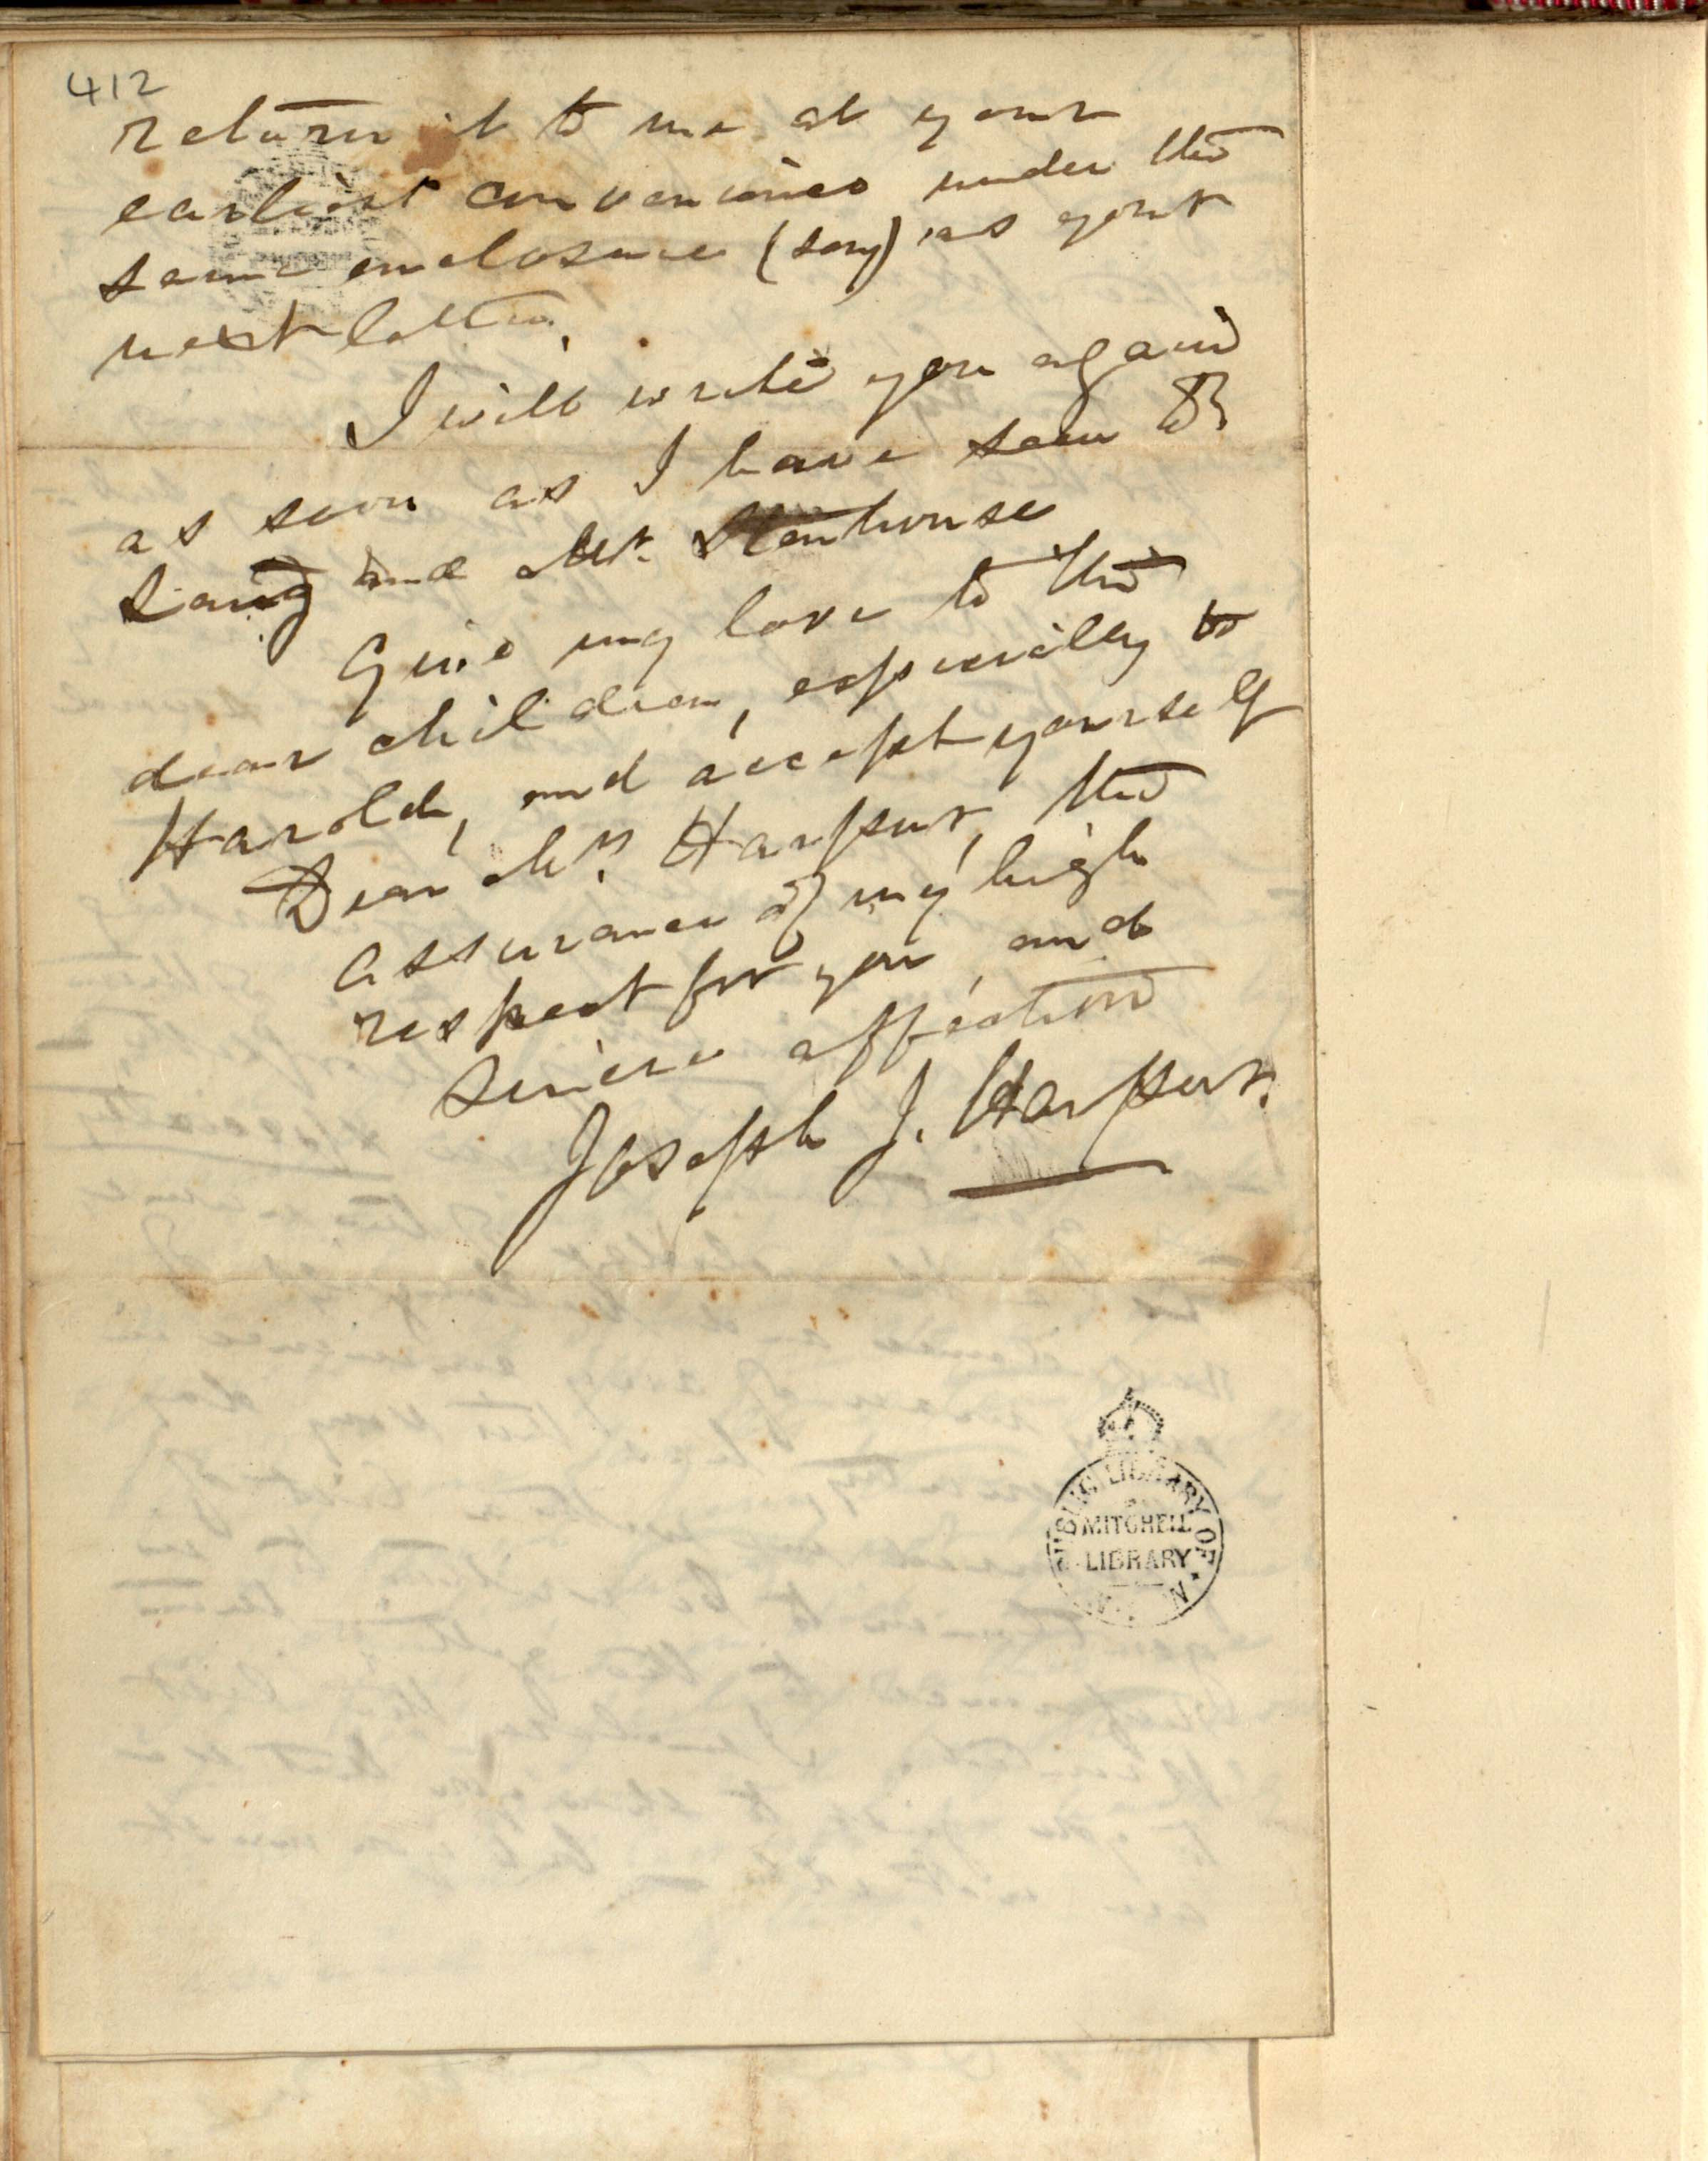 412
return it to me at your
earliest convenience under the
same enclosure (say) as your
next letter.
I will write you again
as soon as I have seen Dr
Lang and Mr. Stenhouse
Give my love to the
dear children, especially to
Harold, and accept yourself
Dear Mrs. Harpur, the
assurance of my high
respect for you and
sincere affection
Joseph J. Harpur.
PUBLIC LIBRARY OF
MITCHELL
LIBRARY